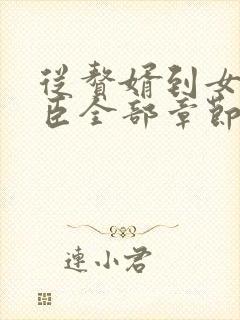 從贅婿到女
臣全部章節
連小君